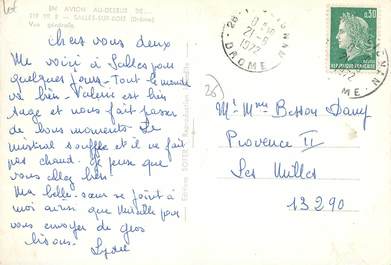 EN AVION AU-DESSUS DE...
SALLES-SUR-BOIS (Drôme)
Vue générale
Chers vous deux
Me voici à Salles pour
quelques jours - Tout le monde
va bien - Valérie est bien
sage et nous fait passer
de bons moments. Le
mistral souffle et il ne fait
pas chaud. Je pense que
vous allez bien
Ma belle-sœur se joint à
moi ainsi que Mireille pour
vous envoyer de gros
bisous.
26
DROME
21-6
1972
0,30
REPUBLIQUE FRANCAISE
26
Mr Mme Besson Dany
Provence II
Les Milles
13290